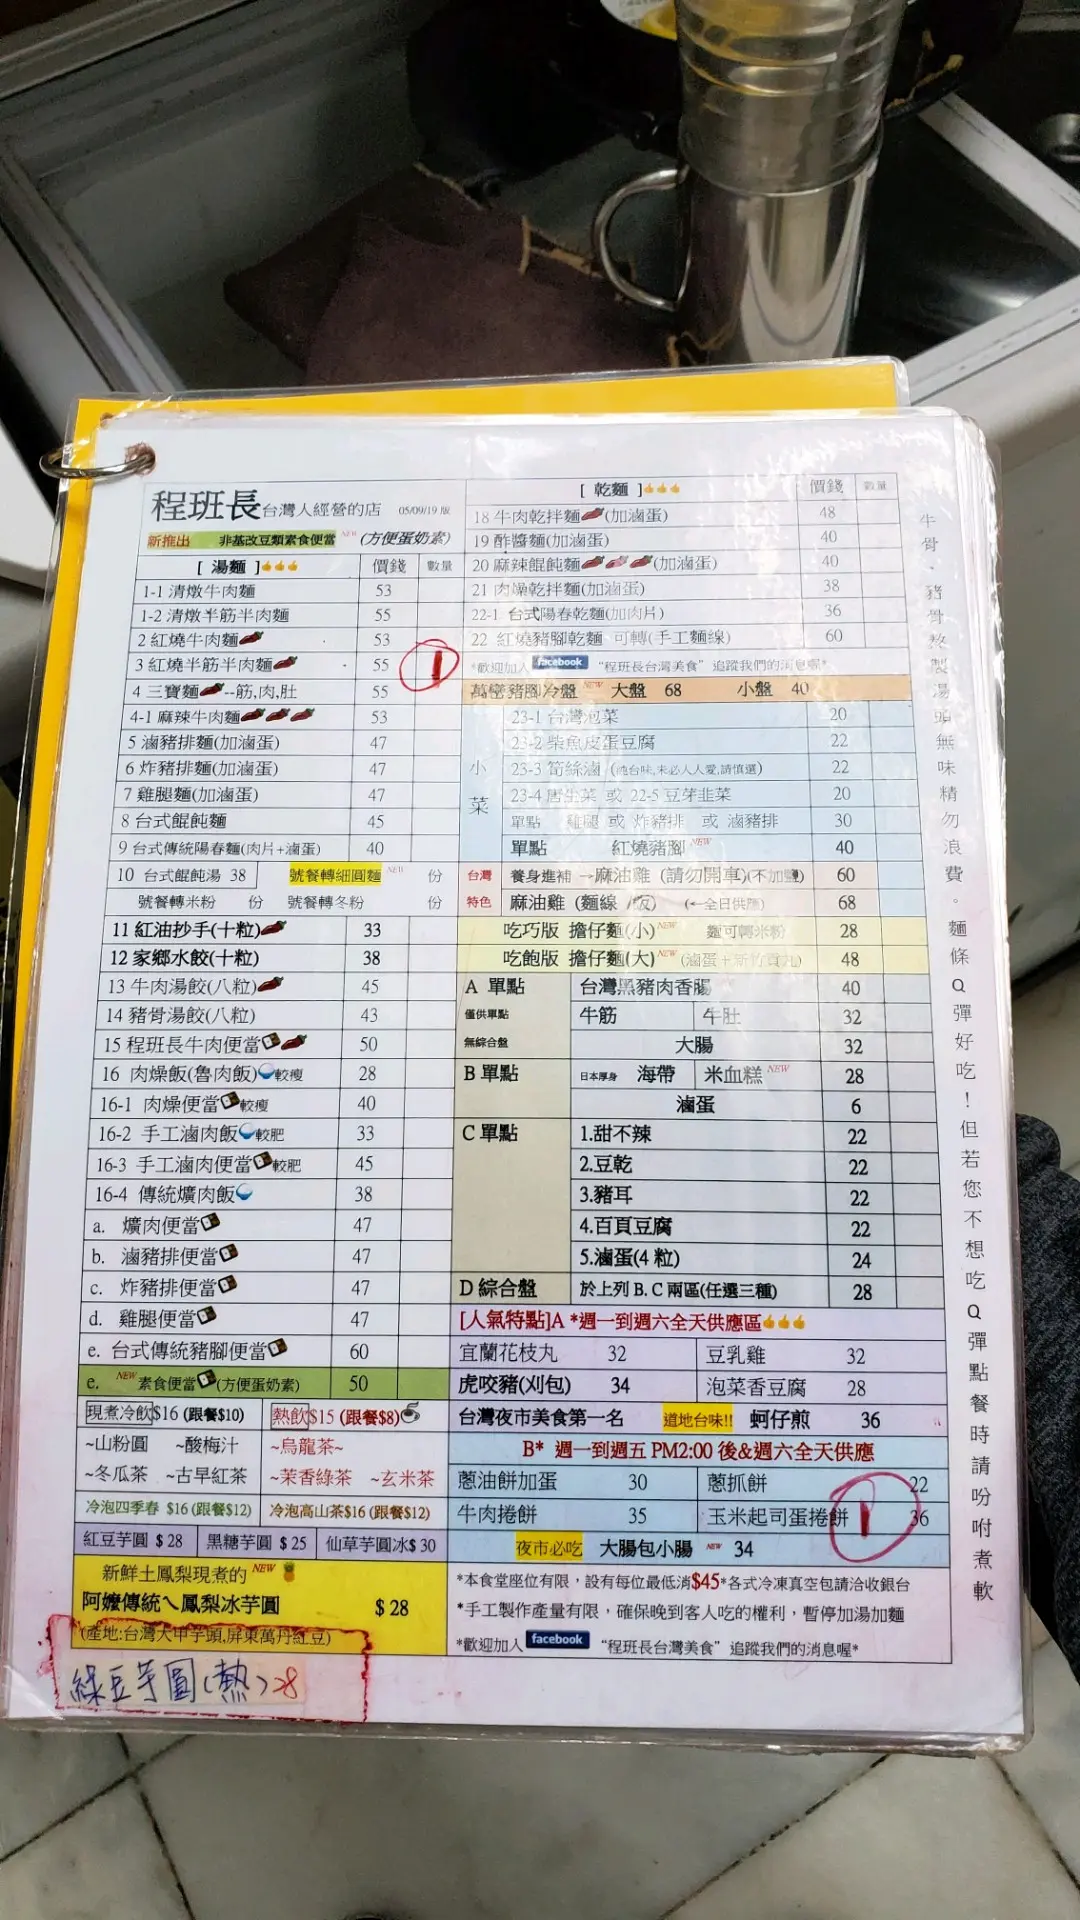 程班長台灣人經營的店 05/09/19 版
新推出 非基改豆類素食便當 NEW (方便蛋奶素)
[ 湯麵 ] 價錢 數量
1-1 清燉牛肉麵 53
1-2 清燉半筋半肉麵 55
2 紅燒牛肉麵 53
3 紅燒半筋半肉麵 55 1
4 三寶麵--筋,肉,肚 55
4-1 麻辣牛肉麵 53
5 滷豬排麵(加滷蛋) 47
6 炸豬排麵(加滷蛋) 47
7 雞腿麵(加滷蛋) 47
8 台式餛飩麵 45
9 台式傳統陽春麵(肉片+滷蛋) 40
10 台式餛飩湯 38 號餐轉細圓麵 NEW 份
號餐轉米粉 份 號餐轉冬粉 份
11 紅油抄手(十粒) 33
12 家鄉水餃(十粒) 38
13 牛肉湯餃(八粒) 45
14 豬骨湯餃(八粒) 43
15 程班長牛肉便當 50
16 肉燥飯(魯肉飯)較瘦 28
16-1 肉燥便當較瘦 40
16-2 手工滷肉飯較肥 33
16-3 手工滷肉便當較肥 45
16-4 傳統爌肉飯 38
a. 爌肉便當 47
b. 滷豬排便當 47
c. 炸豬排便當 47
d. 雞腿便當 47
e. 台式傳統豬腳便當 60
e. NEW 素食便當(方便蛋奶素) 50
現煮冷飲$16 (跟餐$10) 熱飲$15 (跟餐$8)
~山粉圓 ~酸梅汁 ~烏龍茶~
~冬瓜茶 ~古早紅茶 ~茉香綠茶 ~玄米茶
冷泡四季春 $16 (跟餐$12) 冷泡高山茶$16 (跟餐$12)
紅豆芋圓 $ 28 黑糖芋圓 $ 25 仙草芋圓冰$ 30
新鮮土鳳梨現煮的 NEW
阿嬤傳統ㄟ鳳梨冰芋圓 $ 28
(產地:台灣大甲芋頭,屏東萬丹紅豆)
綠豆芋圓(熱)28
[ 乾麵 ] 價錢 數量
18 牛肉乾拌麵(加滷蛋) 48
19 酢醬麵(加滷蛋) 40
20 麻辣餛飩麵(加滷蛋) 40
21 肉燥乾拌麵(加滷蛋) 38
22-1 台式陽春乾麵(加肉片) 36
22 紅燒豬腳乾麵 可轉(手工麵線) 60
*歡迎加入 facebook “程班長台灣美食” 追蹤我們的消息喔*
萬巒豬腳冷盤 NEW 大盤 68 小盤 40
小菜
23-1 台灣泡菜 20
23-2 柴魚皮蛋豆腐 22
23-3 筍絲滷 (純台味,未必人人愛,請慎選) 22
23-4 唐生菜 或 22-5 豆芽韭菜 20
單點 雞腿 或 炸豬排 或 滷豬排 30
單點 紅燒豬腳 NEW 40
台灣 養身進補 →麻油雞 (請勿開車)(不加鹽) 60
特色 麻油雞 (麵線 /飯) (←全日供應) 68
吃巧版 擔仔麵(小) NEW 麵可轉米粉 28
吃飽版 擔仔麵(大) NEW (滷蛋+新竹貢丸) 48
A 單點 台灣黑豬肉香腸 NEW 40
僅供單點 牛筋 牛肚 32
無綜合盤 大腸 32
B 單點 日本厚身 海帶 米血糕 NEW 28
滷蛋 6
C 單點 1.甜不辣 22
2.豆乾 22
3.豬耳 22
4.百頁豆腐 22
5.滷蛋(4 粒) 24
D 綜合盤 於上列 B. C 兩區(任選三種) 28
[人氣特點]A *週一到週六全天供應區
宜蘭花枝丸 32 豆乳雞 32
虎咬豬(刈包) 34 泡菜香豆腐 28
台灣夜市美食第一名 道地台味!! 蚵仔煎 36
B* 週一到週五 PM2:00 後&週六全天供應
蔥油餅加蛋 30 蔥抓餅 22
牛肉捲餅 35 玉米起司蛋捲餅 1 36
夜市必吃 大腸包小腸 NEW 34
*本食堂座位有限，設有每位最低消$45*各式冷凍真空包請洽收銀台
*手工製作產量有限，確保晚到客人吃的權利，暫停加湯加麵
*歡迎加入 facebook “程班長台灣美食” 追蹤我們的消息喔*
牛骨、豬骨熬製湯頭無味精勿浪費。麵條Q彈好吃！但若您不想吃Q彈點餐時請吩咐煮軟